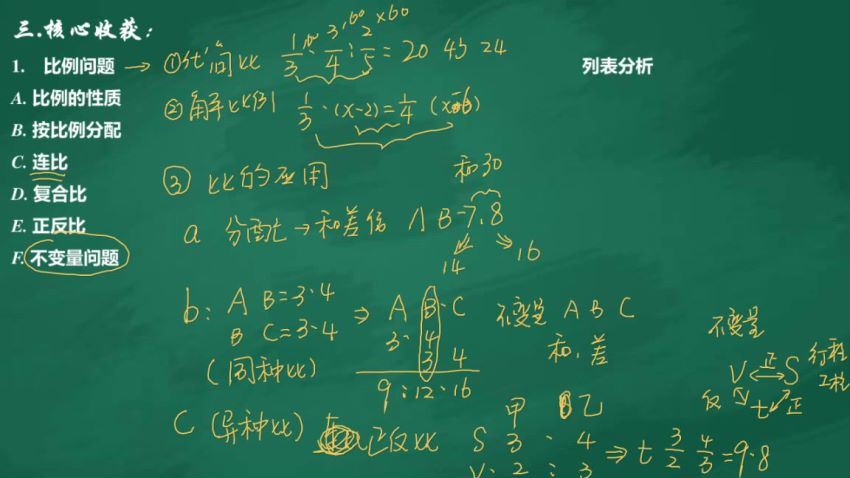 三.核心收获:
1. 比例问题 → ①化简比 1/3 : 3/4 : 2/5 = 20 45 24
×60
列表分析
A. 比例的性质
②解比例 1/3 · (x-2) = 1/4
B. 按比例分配
C. 连比
D. 复合比
E. 正反比
F. 不变量问题
③ 比的应用
和30
a 分配 → 和差倍 A B = 7:8
14 16
b: A B = 3:4
B C = 3:4
(同种比)
⇒ A B C
3 : 4
3 4
9 : 12 : 16
不变量 A B C
和、差
不变量
V 正 S 行程
工程
反 t 正
C (异种比) 正反比
甲 乙
S 3 : 4 ⇒ t 3/2 4/3 = 9:8
V: 2 : 3